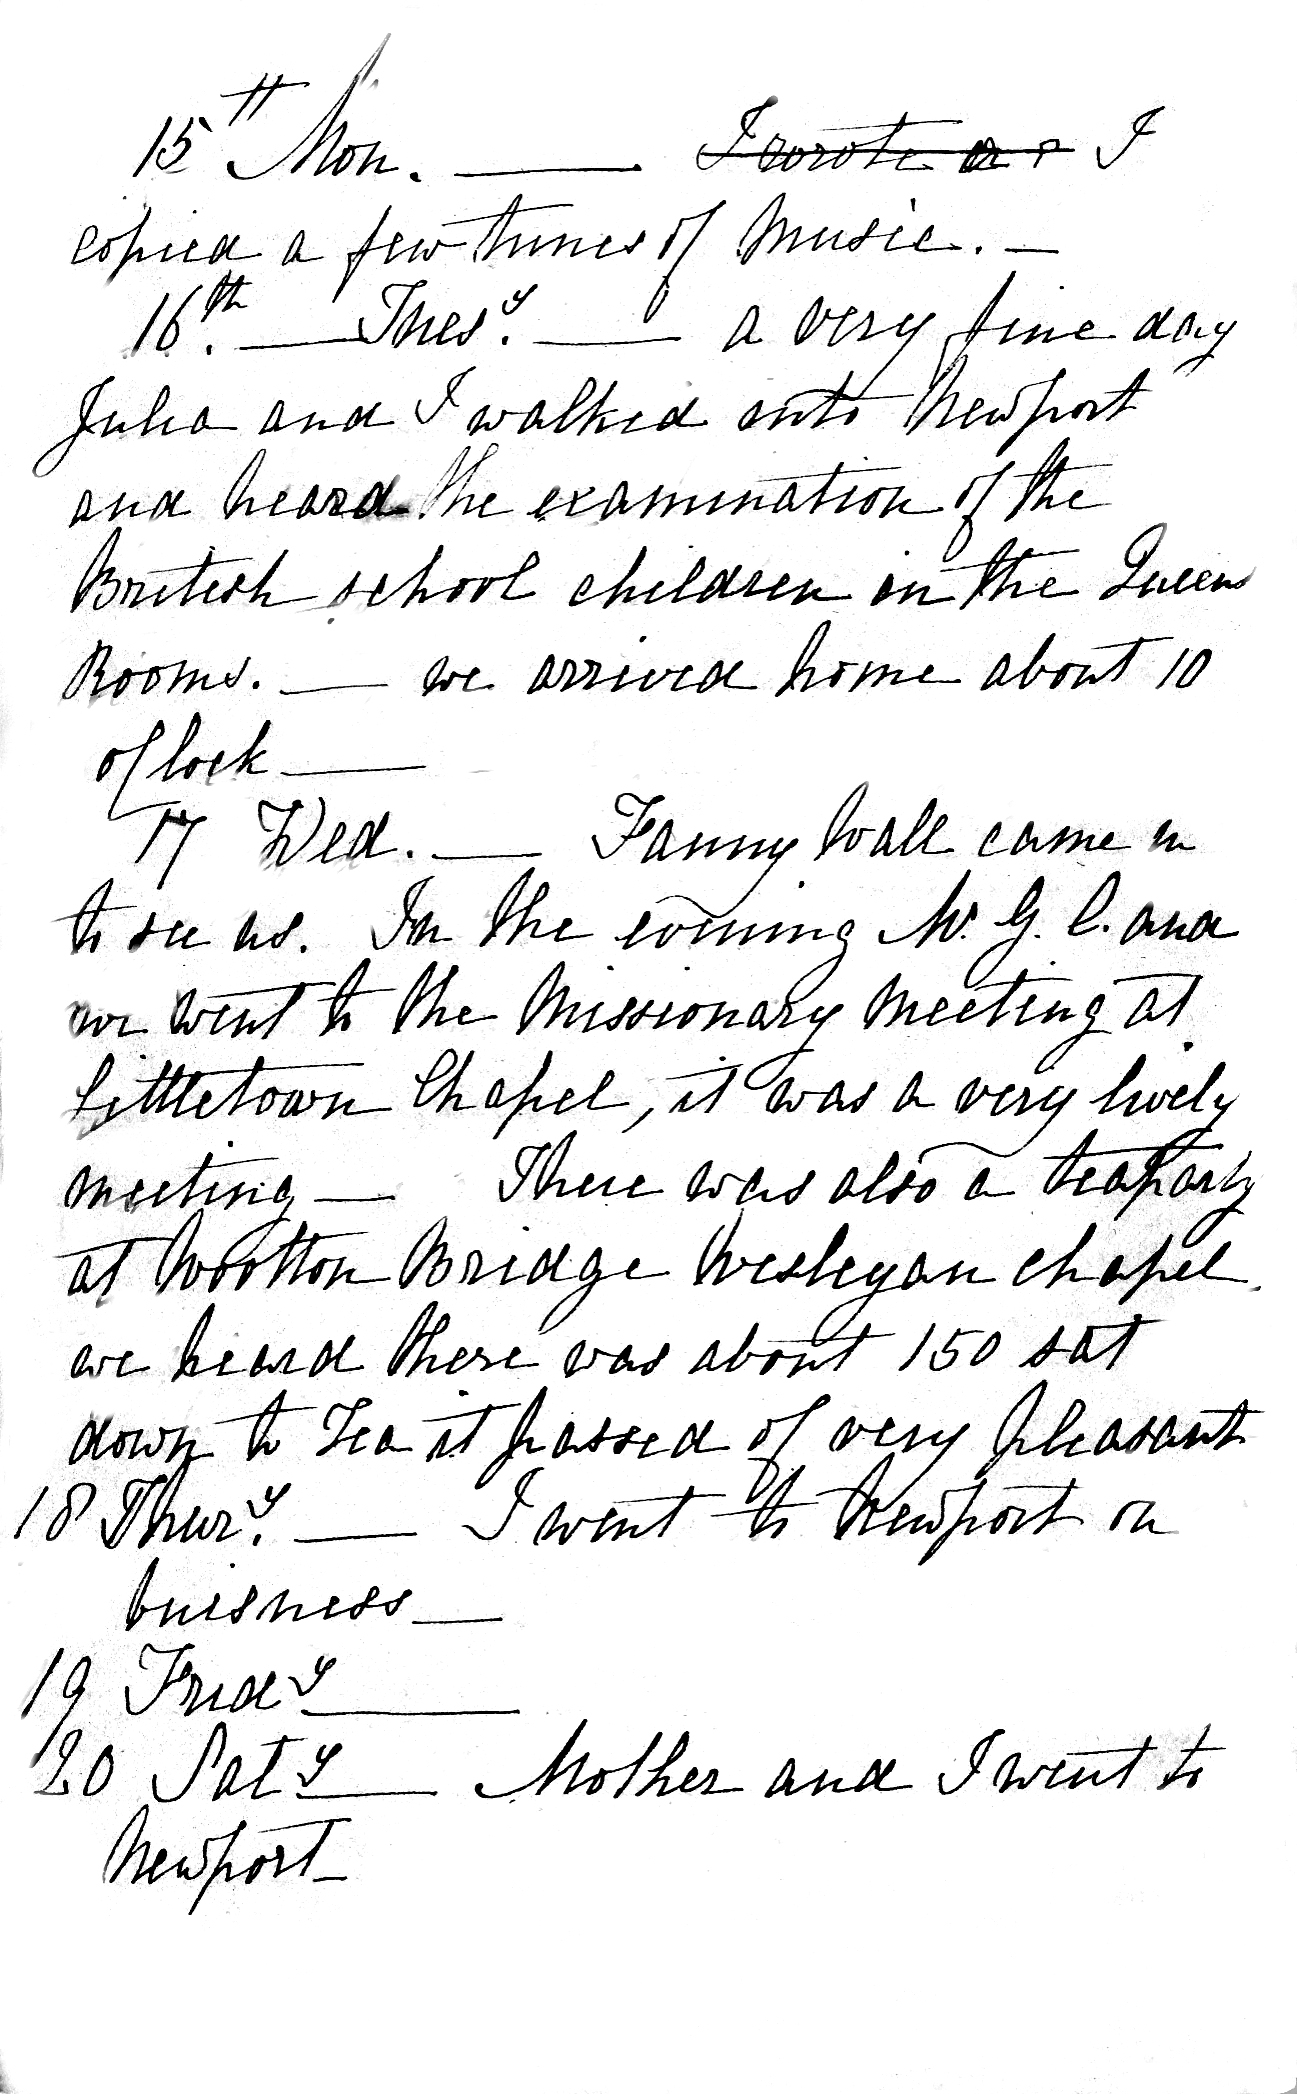 15th Mon. — I wrote a I
copied a few tunes of Music. —
16th. — Tues.y — a very fine day
Julia and I walked into Newport
and heard the examination of the
British school children in the Queens
Rooms. — we arrived home about 10
oclock —
17 Wed. — Fanny Wall came in
to see us. In the evening W. G. C. and
we went to the Missionary Meeting at
Littletown Chapel, it was a very lively
meeting — There was also a teaparty
at Wootton Bridge Wesleyan chapel.
we heard there was about 150 sat
down to Tea it passed of very pleasant
18 Thur.y — I went to Newport on
buisness —
19 Fridy —
20 Saty — Mother and I went to
Newport —